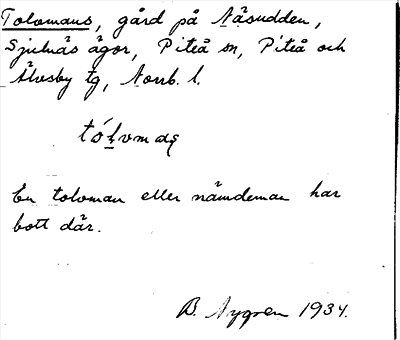 Tolomans, gård på Näsudden,
Sjulnäs ägor, Piteå sn, Piteå och
Älvsby tg, Norrb. l.
tólvmas
En toloman eller nämdeman har
bott där.
B. Nygren 1934.